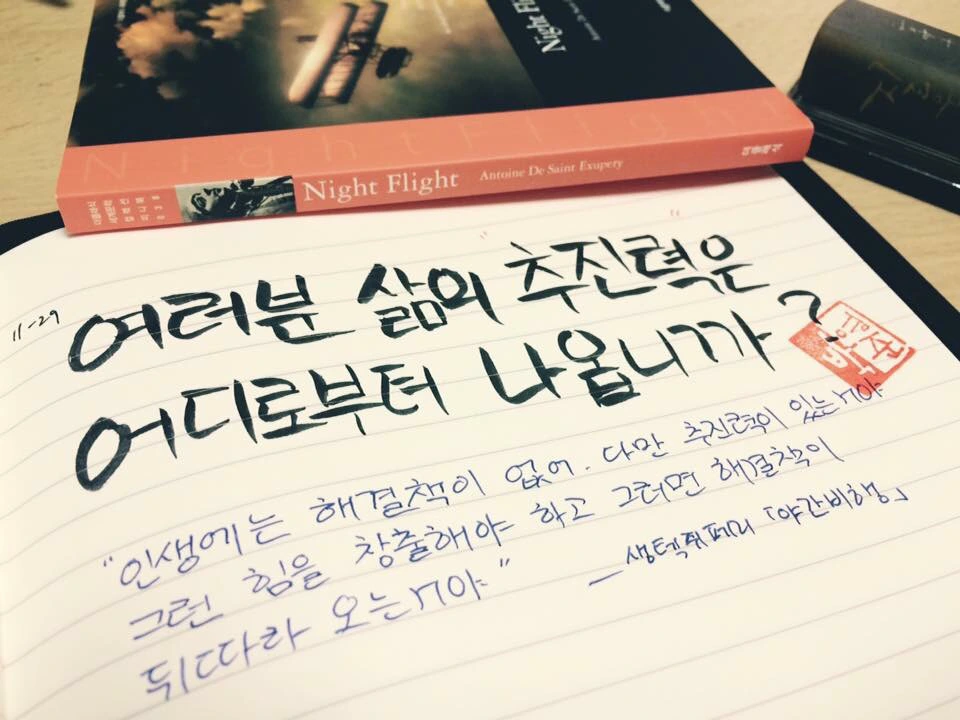 Night Flight
Night Flight
Night Flight Antoine De Saint Exupery
11-29
여러분 삶의 "추진력"은
어디로부터 나옵니까?
"인생에는 해결책이 없어. 다만 추진력이 있는거야
그런 힘을 창출해야 하고 그러면 해결책이
뒤따라 오는거야"
— 생텍쥐페리 「야간비행」